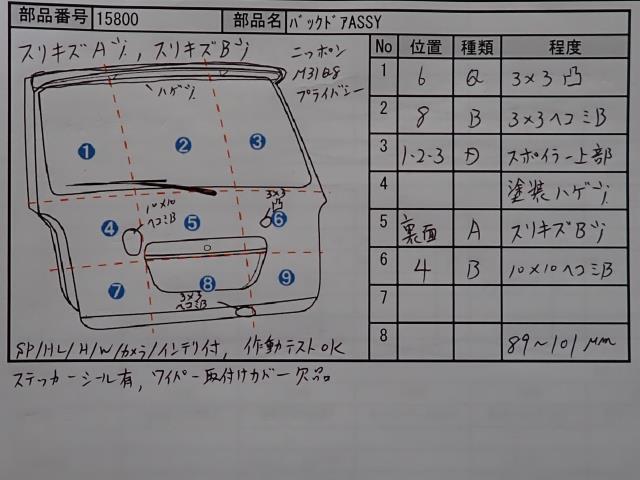 部品番号 15800 部品名 バックドアASSY
スリキズAシ, スリキズBシ
ニッポン
M31B8
プライバシー
ハゲシ
No 位置 種類 程度
1 6 Q 3×3凸
2 8 B 3×3ヘコミB
3 1・2・3 D スポイラー上部
4 塗装ハゲシ
5 裏面 A スリキズBシ
6 4 B 10×10ヘコミB
7
8 89~101μm
1 2 3
3×3
凸
10×10
ヘコミB
4 5 6
7 8 9
3×3
ヘコミB
SP/HL/H/W/カメラ/インテリ付, 作動テストOK
ステッカーシール有, ワイパー取付けカバー欠品